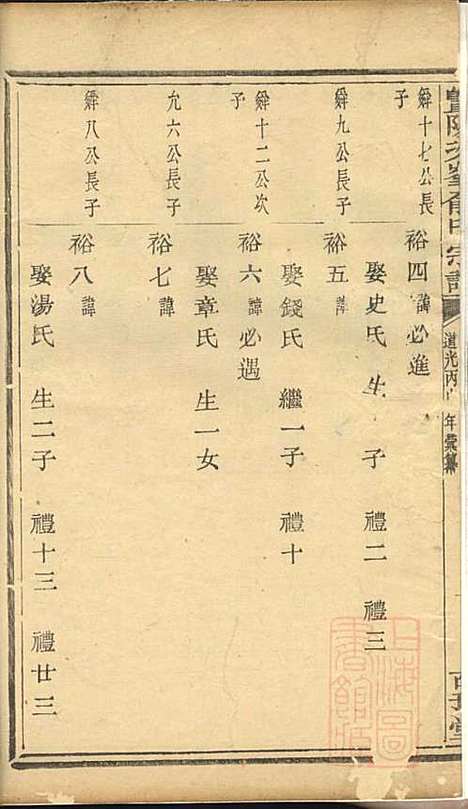 暨陽次峯俞氏宗譜
道光丙 年彙纂
舜十七公長子
裕四 諱必進
娶史氏 生 子 禮二 禮三
舜九公長子
裕五 諱
娶錢氏 繼一子 禮十
舜十二公次子
裕六 諱必遇
娶章氏 生一女
允六公長子
裕七 諱
舜八公長子
裕八 諱
娶湯氏 生二子 禮十三 禮廿三
上海圖書館藏